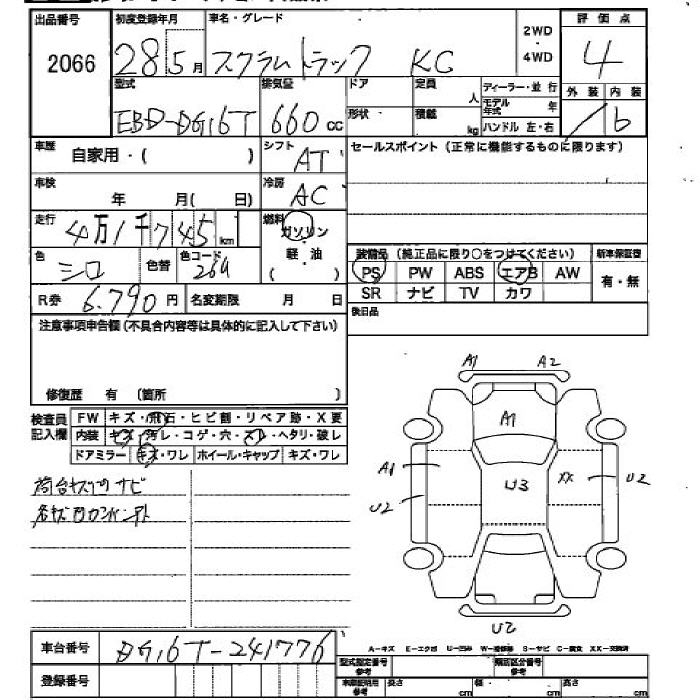 出品番号 初度登録年月 車名・グレード 2WD・4WD 評価点
2066 28 5月 スクラムトラック KC 4
型式 排気量 ドア 定員 人 ディーラー・並行 外装 内装
EBD-DG16T 660cc 形状 積載 kg モデル年式 年 ハンドル 左・右 b
車歴 自家用・( ) シフト AT セールスポイント(正常に機能するものに限ります)
車検 年 月( 日) 冷房 AC
走行 4万1千745km 燃料 ガソリン・軽油 ( )
装備品(純正品に限り○をつけてください) 新車保証書
色 シロ 色替 色コード 26U PS PW ABS エアB AW 有・無
R券 6.790円 名変期限 月 日 SR ナビ TV カワ
注意事項申告欄(不具合内容等は具体的に記入して下さい) 後日品
修復歴 有(箇所 )
検査員記入欄 FW キズ・飛石・ヒビ割・リペア跡・X要
内装 キズ・汚レ・コゲ・穴・スレ・ヘタリ・破レ
ドアミラー キズ・ワレ ホイール・キャップ キズ・ワレ
A1 A2
A1
A1 U3 XX U2
U2
U2
荷台サビ
車台番号 DG16T-241776
A-キズ E-エクボ U-凹ミ W-補修跡 S-サビ C-腐食 XX-交換済
登録番号 型式指定番号 参考 類別区分番号 参考
車庫証明用 参考 長さ cm 幅 cm 高さ cm